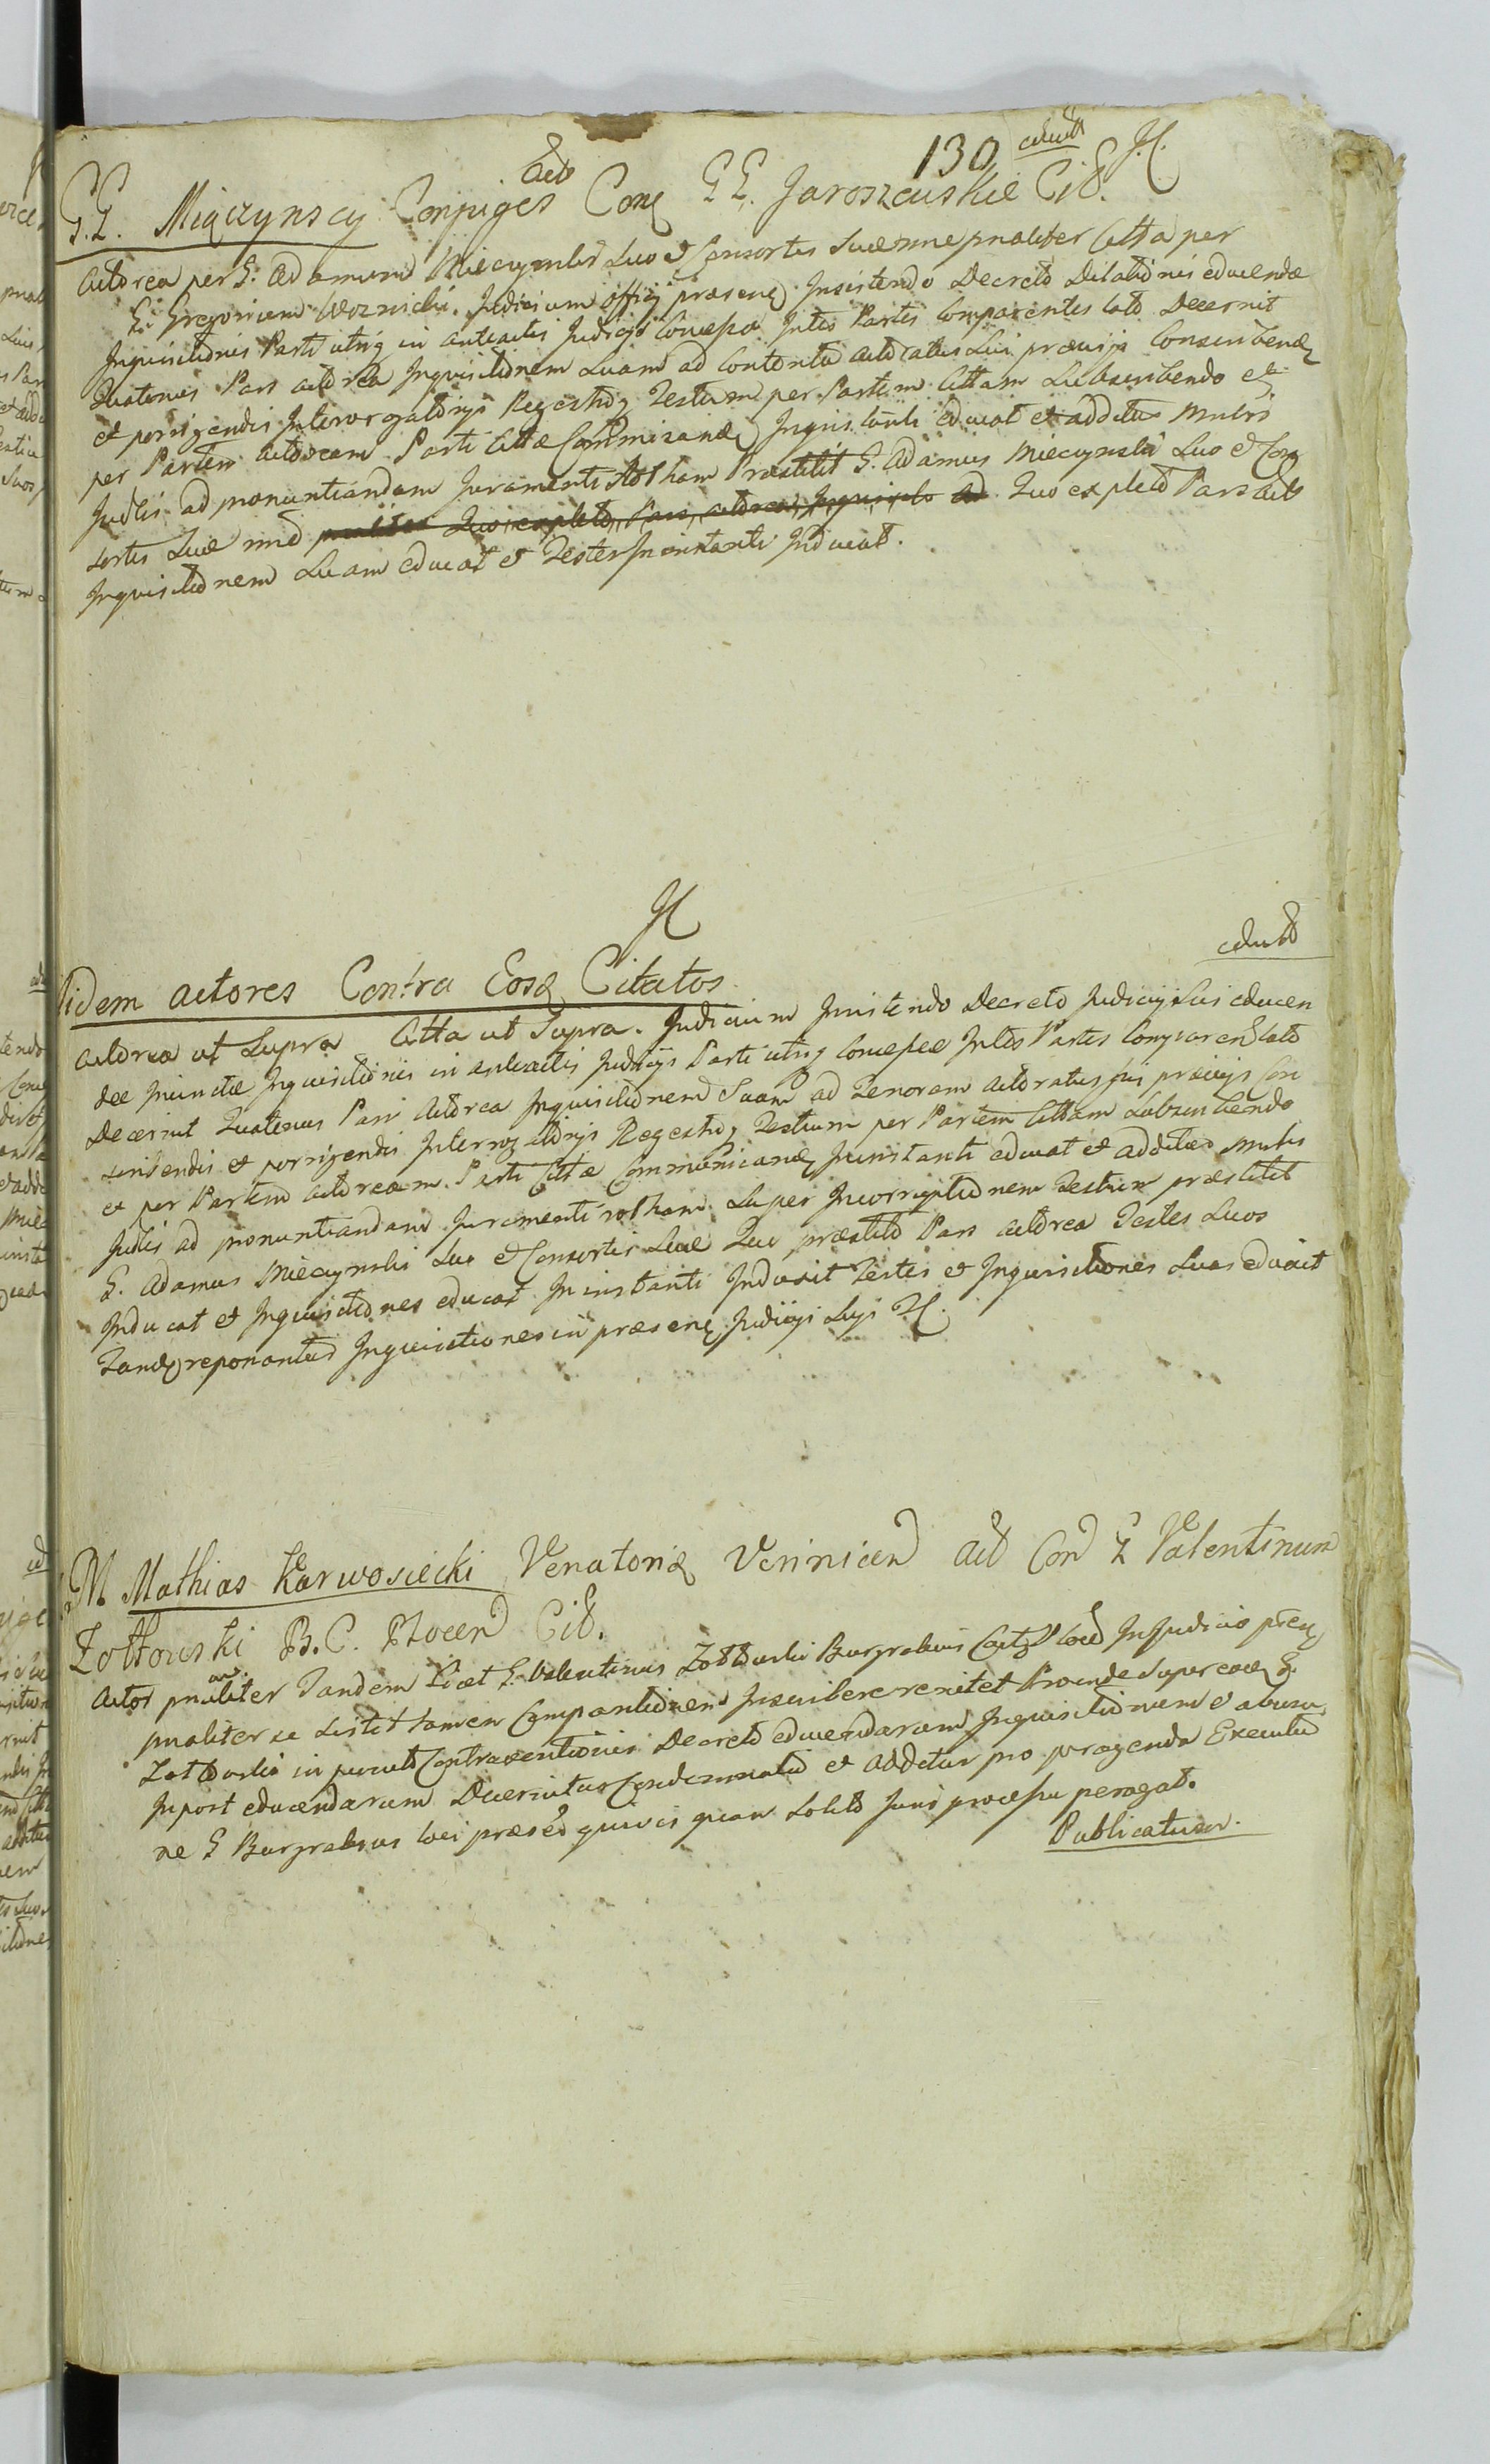 130 eduxit JC.
G.G. Miączynscy Conjuges Act Conq G G. Jaroszewskie Cit.
Actorea per G: Adamum Miecynski Suo et Consortis Suae nne pnaliter Citta per
G: Gregorium Woznicki. Judicium officij praesenq Insistendo Decreto Dilationis educendae
Inquisitionis Parti utriq in anteactis Judicijs Concessa Inter Partes Comparentes lato Decernit
Quatenus Pars actorea Inquisitionem Suam ad Contenta actoratus Sui praevijs Conscribendq
et porrigendis Interrogatorijs Regestroq Testium per Partem Cittam Subscribendo et
per Partem actoream Parti Cittae Communicandq Inquis tanti educat et additus Mnlrs
Judlis ad pronuntiandam Juramenti Rotham Praestitit G. Adamus Miecynski Suo et Con
sortis Suae nnd pnaliter Quo expleto Pars actorea Inquisitio ad Quo expleto Pars acto
Inquisitionem Suam educat et Testes In instanti Inducat.
JC
eduxit
Iidem actores Contra Eosq Citatos.
actorea ut Supra Citta ut Supra. Judicium Insistendo Decreto Judicij Sui educen
dae Iniunctae Inquisitionis in anteactis Judicijs Parti utriq Concessae Inter Partes Comparen lato
Decernit Quatenus Pars Actorea Inquisitionem Suam ad Tenorem actoratus sui praevijs Con
scribendis et porrigendis Interrogatorijs Regestroq Testium per Partem Cittam Subscribendo
et per Partem actoream Parti Cittae Communicandq Ininstanti educat et additus Mnlis
Judlis ad pronuntiandam Juramenti rotham Super Incorruptionem Testium praestitit
G. Adamus Miecynski Suo et Consortis Suae Quo praestito Pars actorea Testes Suos
Inducat et Inquisitiones educat In instanti Induxit Testes et Inquisitiones Suas eduxit
Tandq reponantur Inquisitiones in praesenq Judicijs Suijs JC.
M Mathias Karwosiecki Venatoriq Vennicen act Con G Valentinum
Zottowski B. C. Plocen Cit.
Actor pnaliter Tandem Licet G: Valentinus Zottowski Burgrabius Cast locd In Judicio pren
pnaliter se Listit tamen Comparitionem Inscribere renitet Proinde Super eoq G.
Zottowski in Contraventionis Decreto educendarum Inquisitionem et abusu
Inport educendarum Decernitur Condemnatio et additur pro peragenda Executio
ne G Burgrabius loci praesed quivis quam solito Juris processu peragat.
Publicatum.